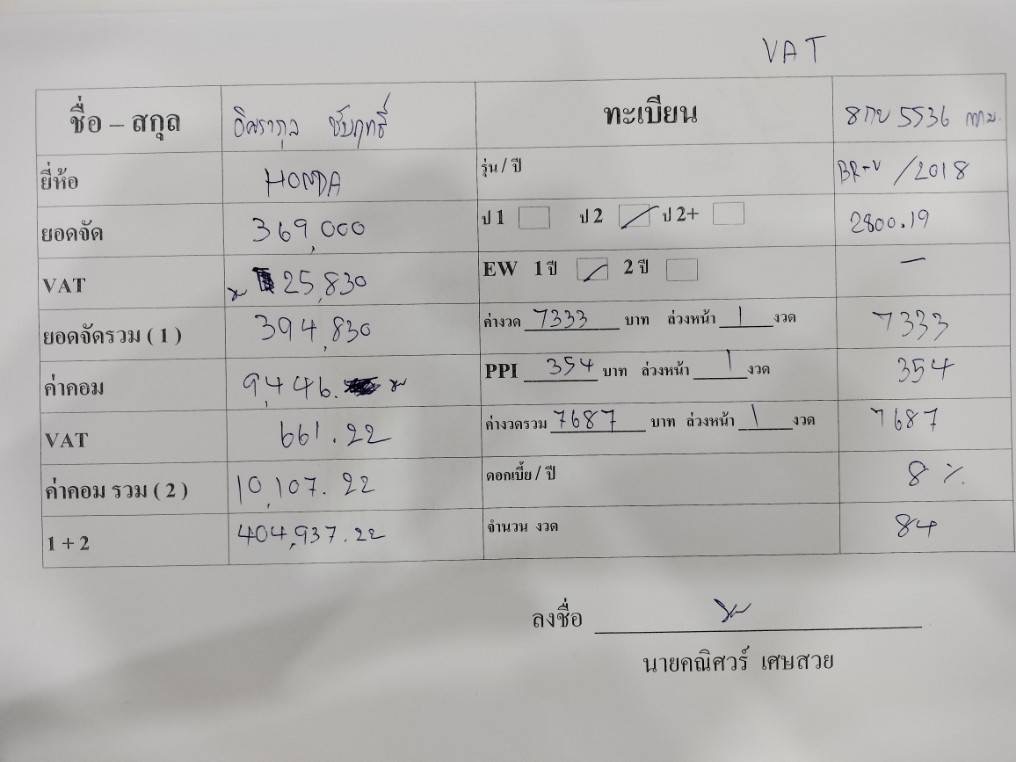 VAT
ชื่อ – สกุล ทะเบียน 8กย 5536 กทม.
ยี่ห้อ HONDA รุ่น / ปี BR-V / 2018
ยอดจัด 369,000 ป 1 ป 2 ป 2+ 2800.19
VAT 25,830 EW 1 ปี 2 ปี —
ยอดจัดรวม ( 1 ) 394,830 ค่างวด 7333 บาท ล่วงหน้า 1 งวด 7333
ค่าคอม 9,446. PPI 354 บาท ล่วงหน้า 1 งวด 354
VAT 661.22 ค่างวดรวม 7687 บาท ล่วงหน้า 1 งวด 7687
ค่าคอม รวม ( 2 ) 10,107.22 ดอกเบี้ย / ปี 8 %.
1 + 2 404,937.22 จำนวน งวด 84
ลงชื่อ
นายคณิศวร์ เศษสวย